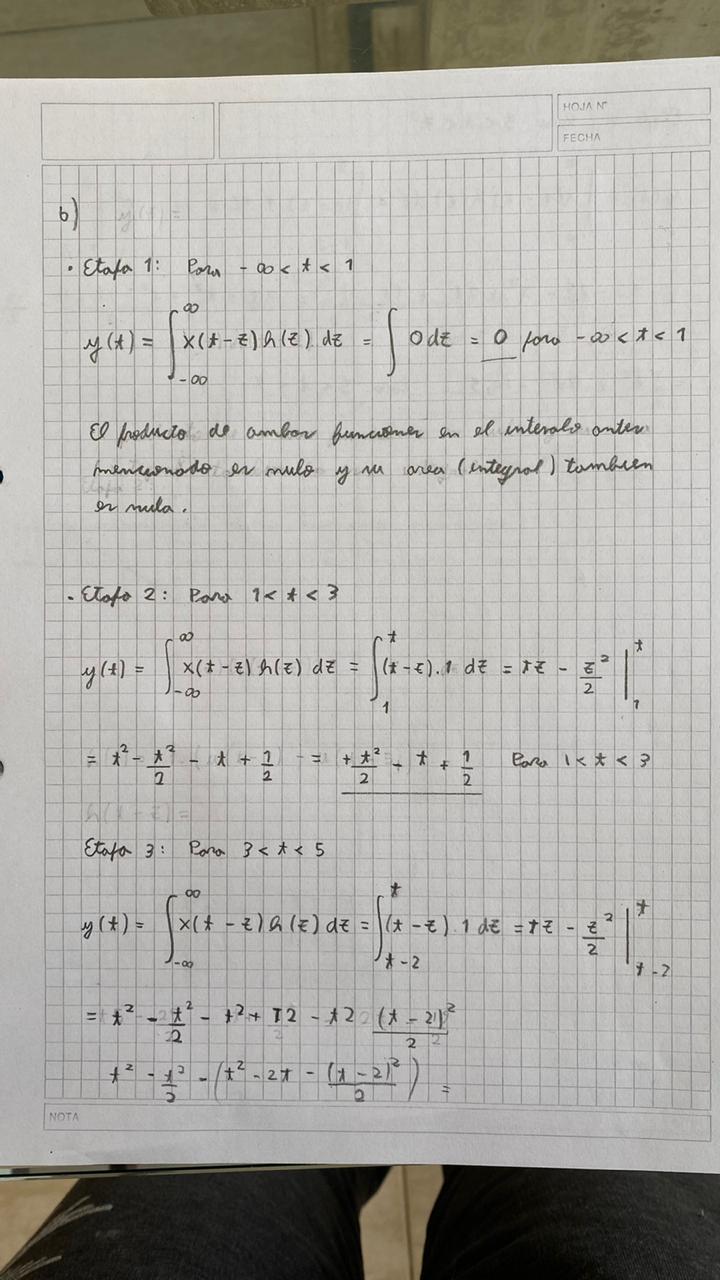 HOJA N°
FECHA
b)
• Etapa 1: Para - ∞ < t < 1
y(t) = ∫_{-∞}^{∞} x(t-z) h(z) dz = ∫ 0 dz = 0 para - ∞ < t < 1
El producto de ambas funciones en el intervalo antes
mencionado es nulo y su area (integral) tambien
es nula.
• Etapa 2: Para 1 < t < 3
y(t) = ∫_{-∞}^{∞} x(t-z) h(z) dz = ∫_{1}^{t} (t-z).1 dz = tz - z²/2 |_{1}^{t}
= t² - t²/2 - t + 1/2 = + t²/2 - t + 1/2 Para 1 < t < 3
Etapa 3: Para 3 < t < 5
y(t) = ∫_{-∞}^{∞} x(t-z) h(z) dz = ∫_{t-2}^{t} (t-z).1 dz = tz - z²/2 |_{t-2}^{t}
= t² - t²/2 - t² + T2 - t2 (t-2)²/2
t² - t²/2 - (t² - 2t - (t-2)²/2) =
NOTA